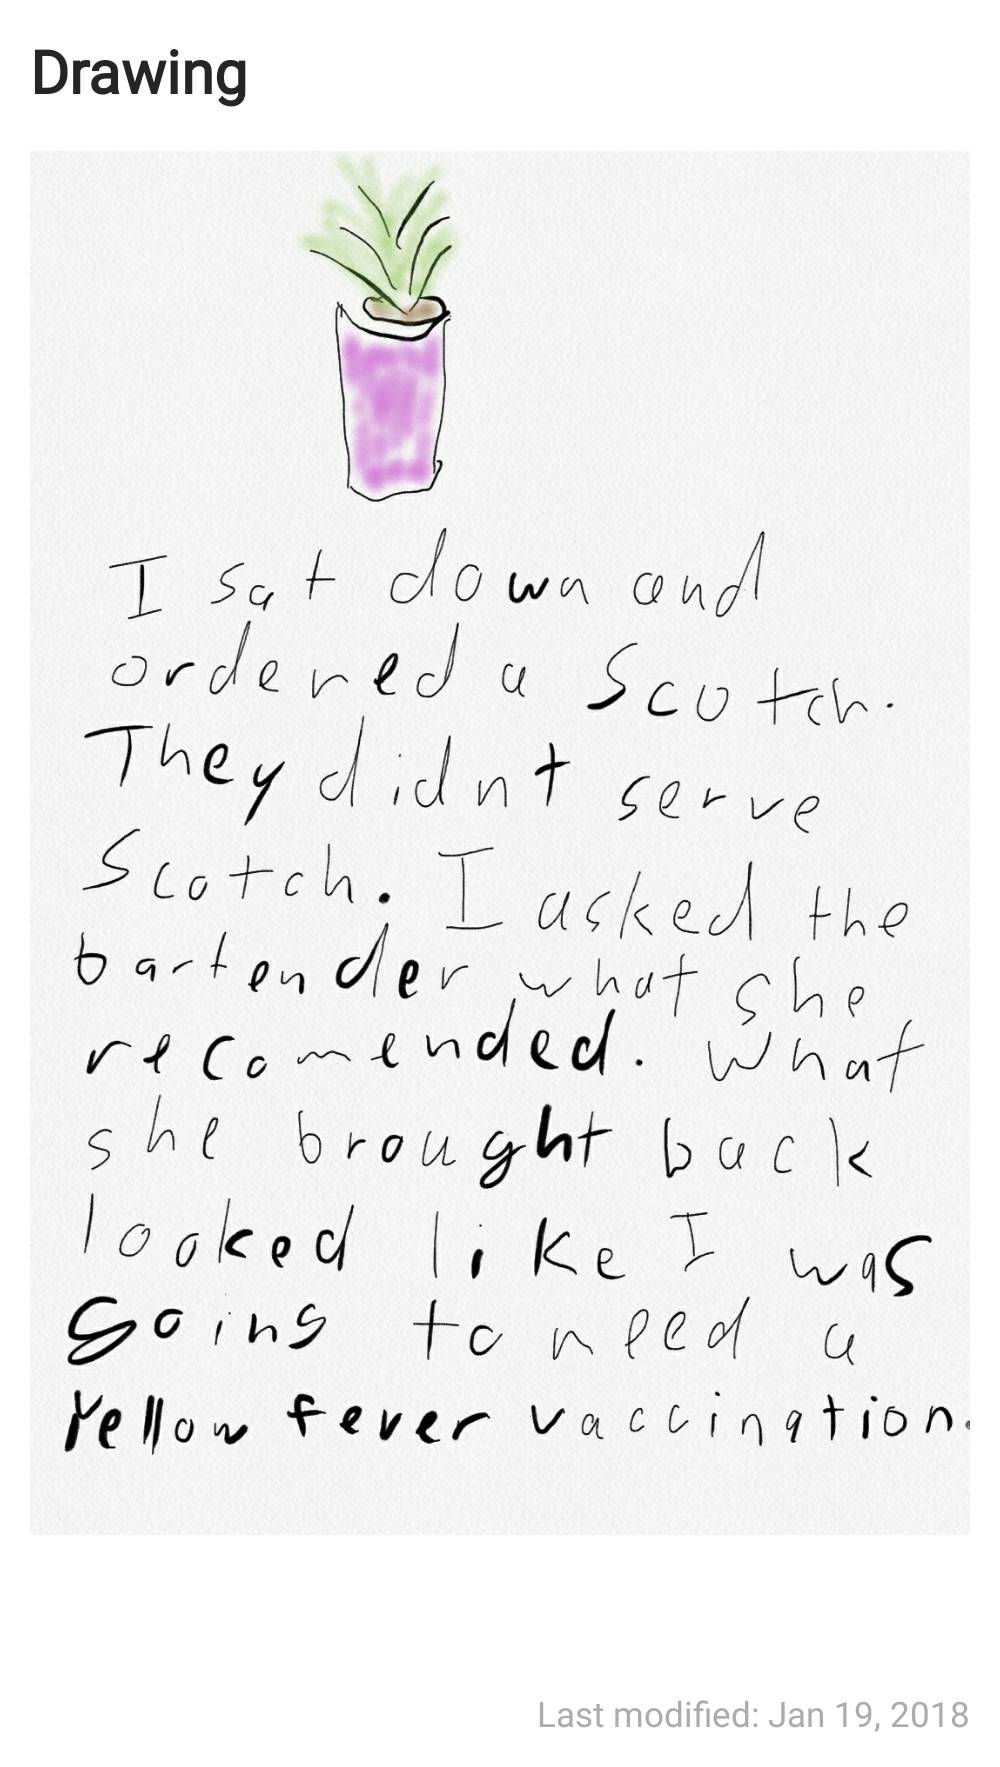 Drawing
I sat down and
ordered a Scotch.
They didnt serve
Scotch. I asked the
bartender what she
recomended. What
she brought back
looked like I was
going to need a
Yellow fever vaccination.
Last modified: Jan 19, 2018